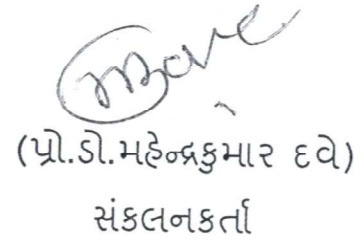 (પ્રો.ડો.મહેન્દ્રકુમાર દવે)
સંકલનકર્તા